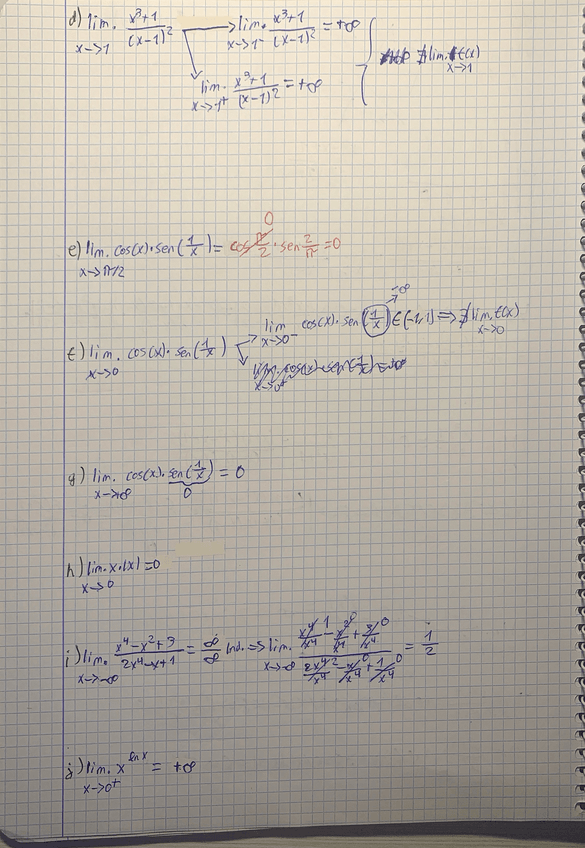 d) lim. x→1 x³+1/(x-1)² → lim. x→1⁻ x³+1/(x-1)² = +∞
lim. x→1⁺ x³+1/(x-1)² = +∞ } ∄ lim. f(x) x→1
e) lim. x→π/2 cos(x)·sen(1/x) = cos π/2 · sen 2/π = 0
0
f) lim. x→0 cos(x)·sen(1/x) → lim x→0⁻ cos(x)·sen(1/x) ∈ (-1,1) ⇒ ∄ lim. f(x) x→0
-∞
g) lim. x→∞ cos(x)·sen(1/x) = 0
0
h) lim. x·|x| = 0 x→0
i) lim. x→-∞ x⁴-x²+3/2x⁴-x+1 = ∞/∞ Ind. ⇒ lim. x→-∞ x⁴/x⁴ 1 - x²/x⁴ 0 + 3/x⁴ 0 / 2x⁴/x⁴ 2 - x/x⁴ 0 + 1/x⁴ 0 = 1/2
j) lim. x→0⁺ x^ln x = +∞